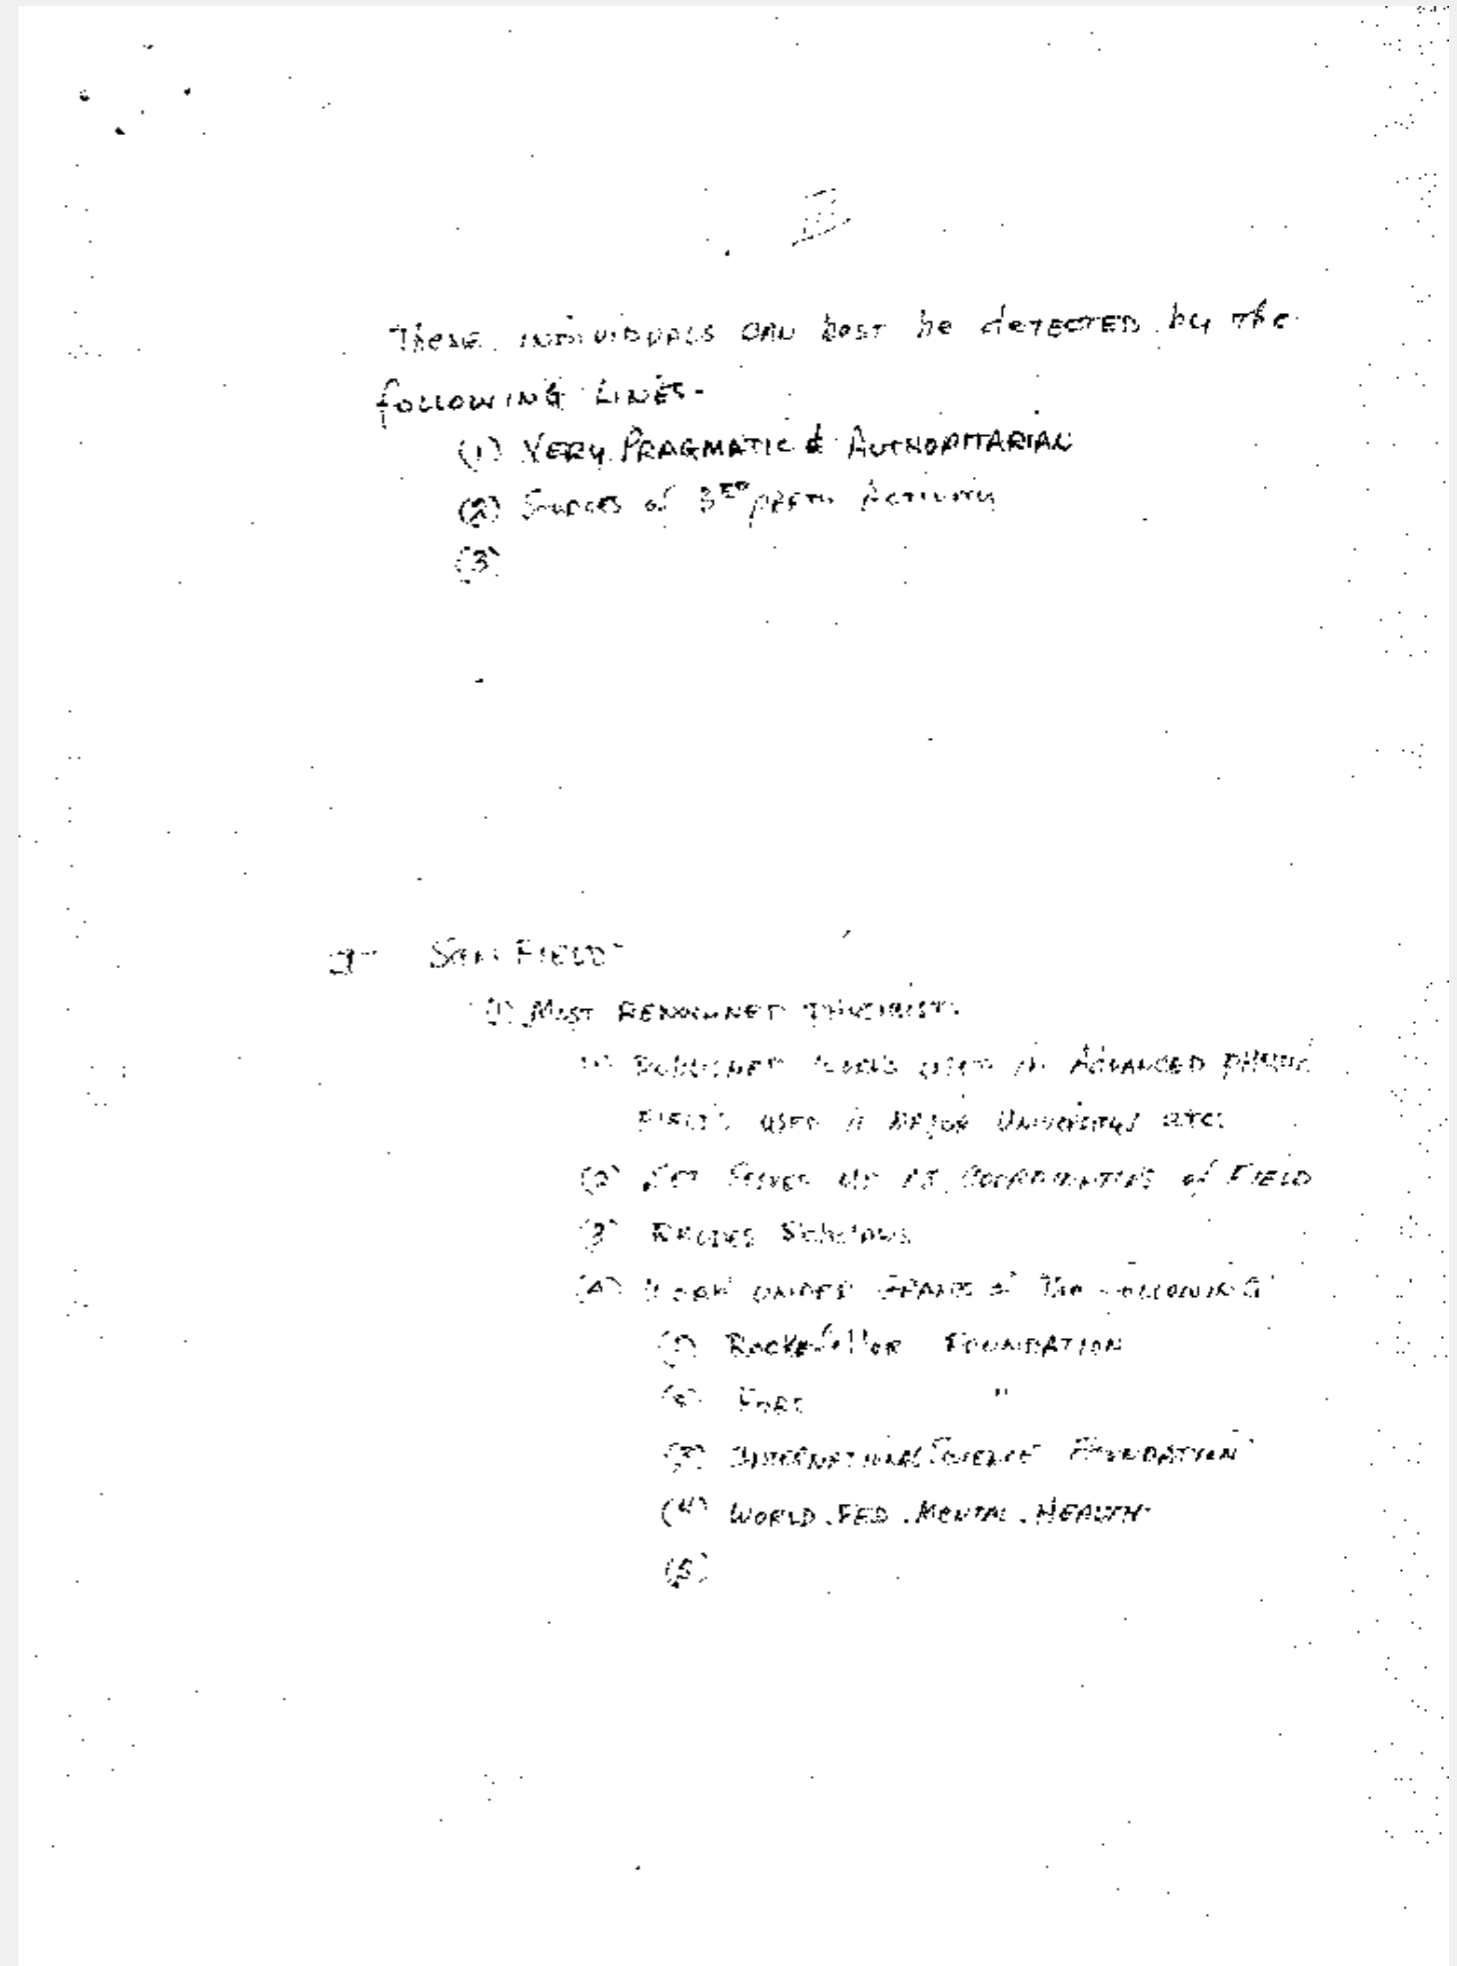 These individuals can best be detected by the
following lines-
(1) Very Pragmatic & Authoritarian
(2) Sources of 3RD Party Activity
(3)
Field-
(1) Most Renowned
used in Advanced
Fields used in Major etc.
(2) Set Selves up as Coordinators of Field
(3) Rhodes Scholars
(4) Work under Grants of the following
(1) Rockefellor Foundation
(2) Ford "
(3) International Science Foundation
(4) World. Fed. Mental. Health-
(5)